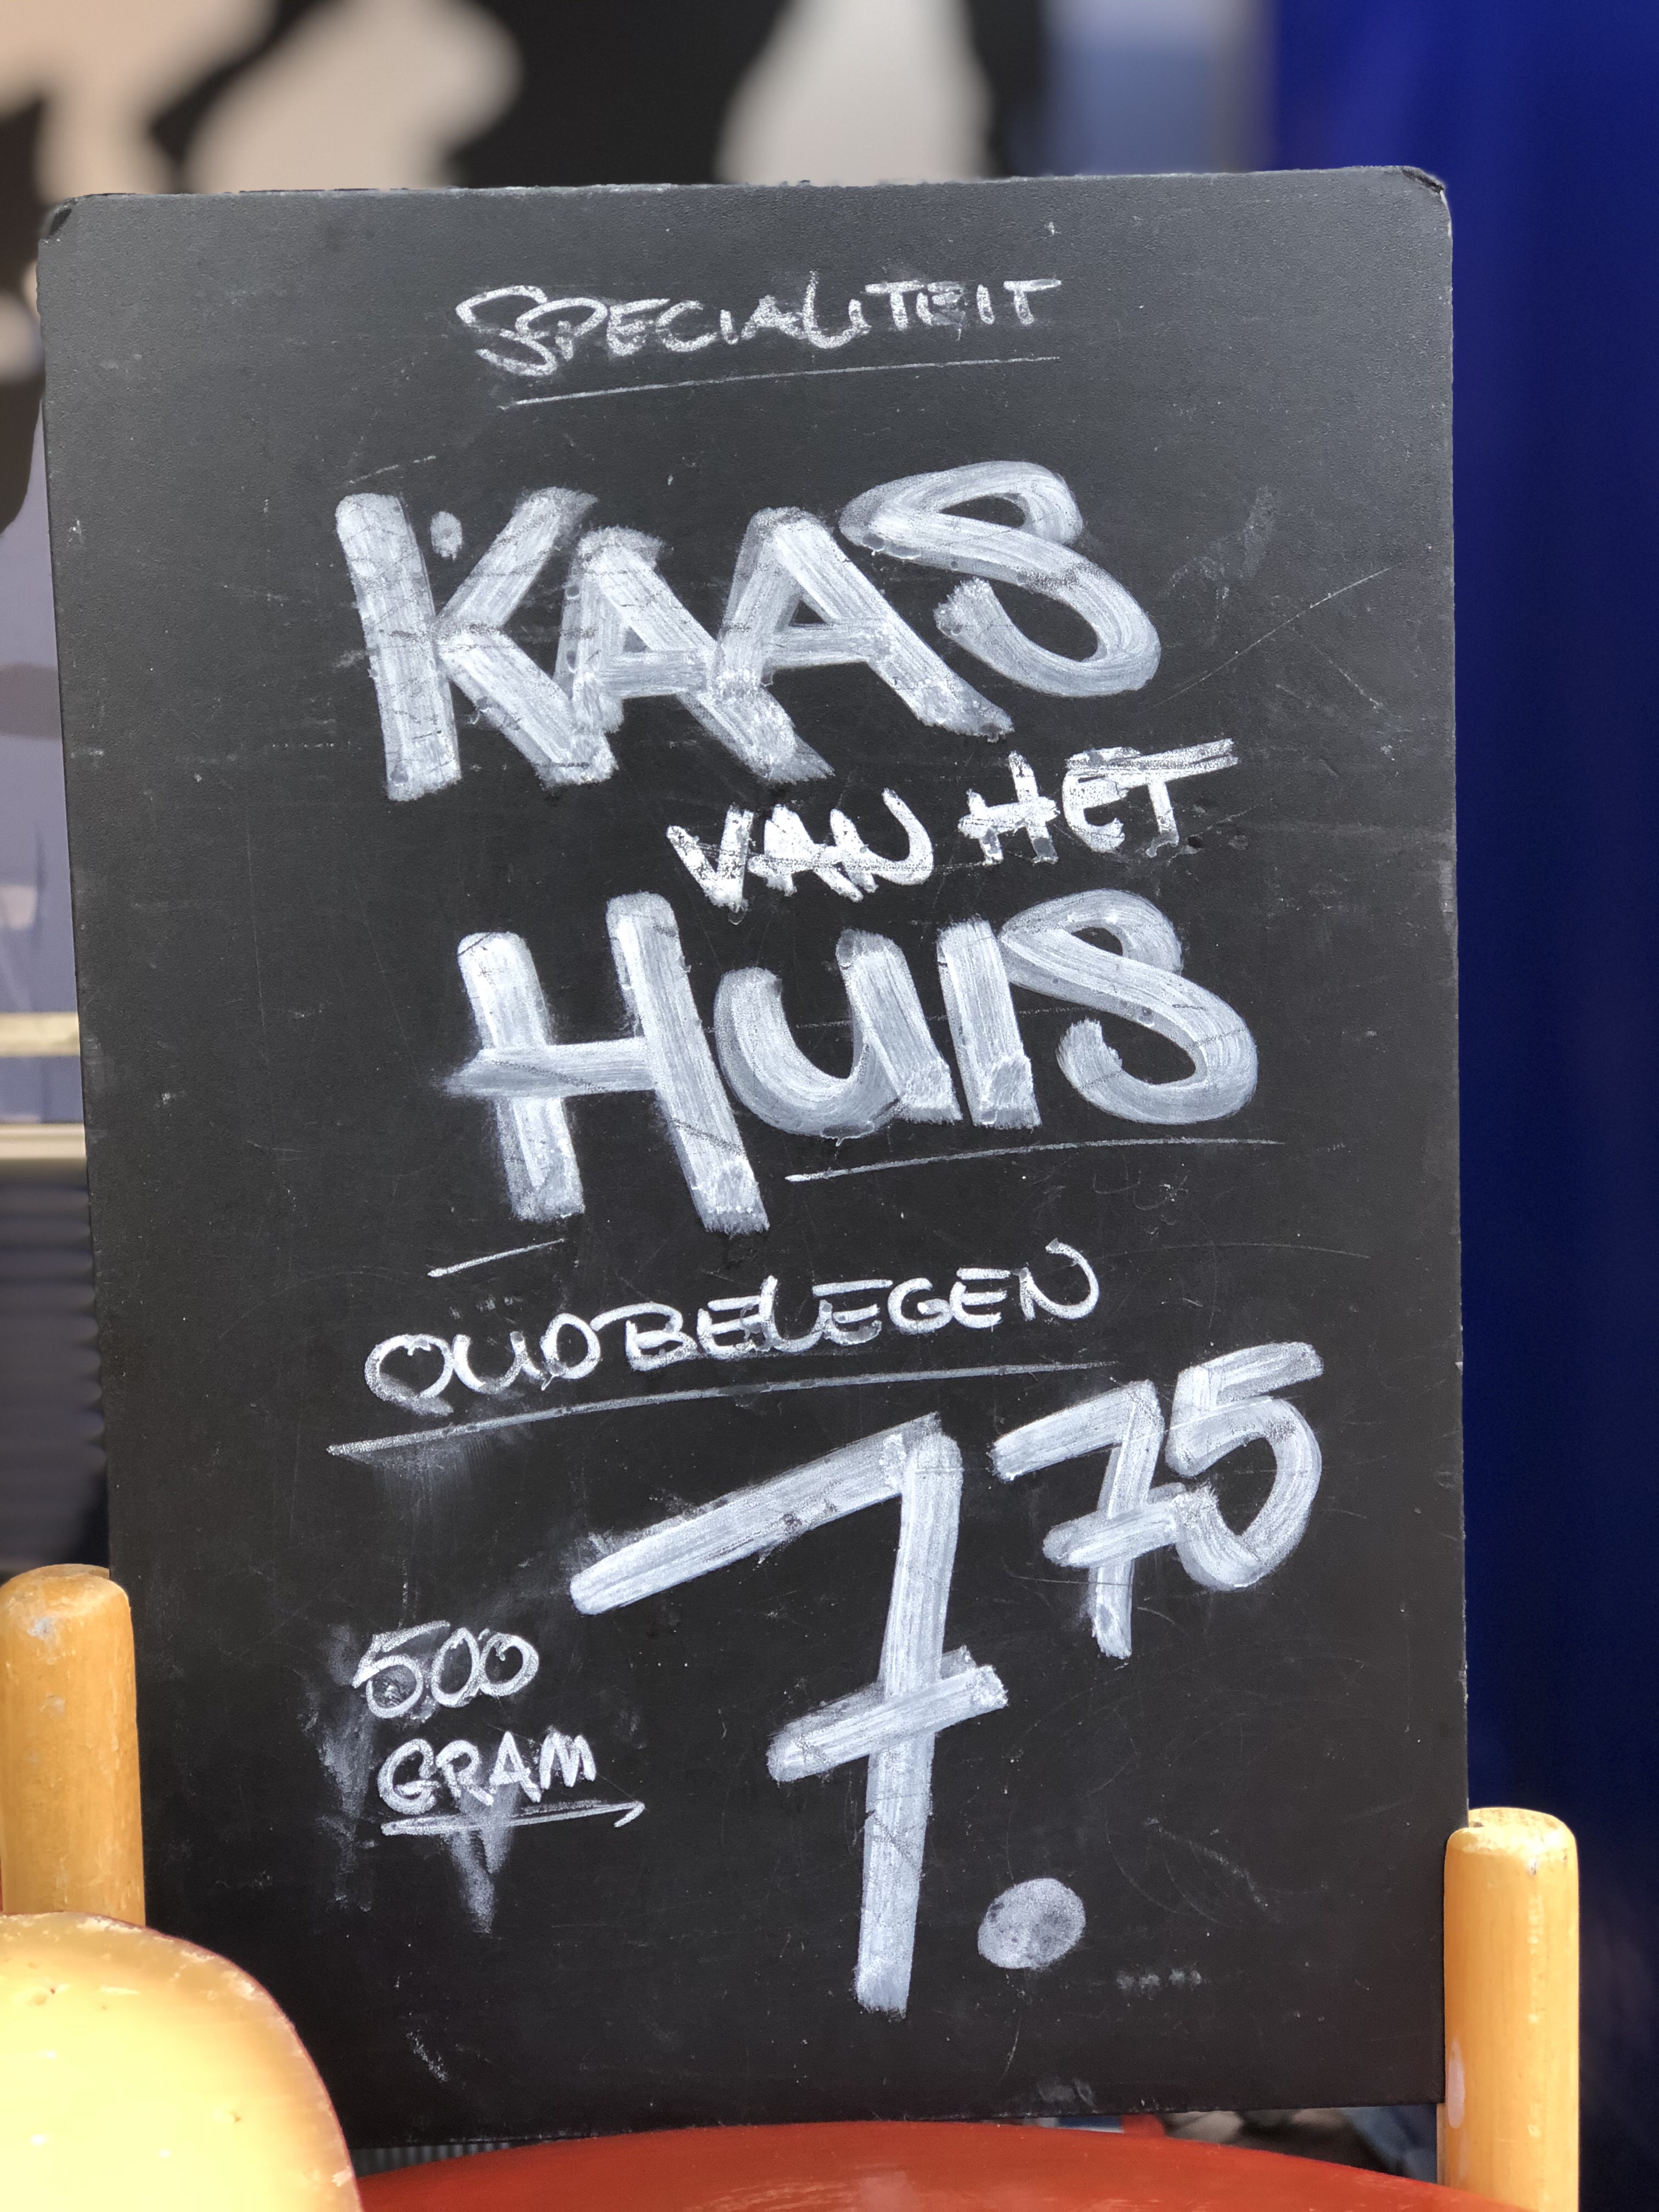 SPECIALITEIT
KAAS
VAN HET
HUIS
OUDBELEGEN
7.75
500
GRAM